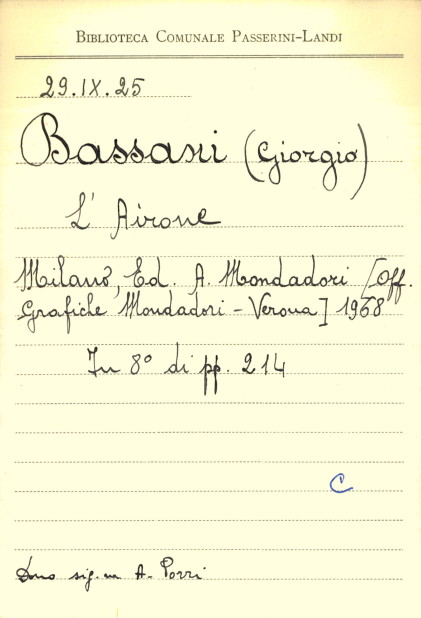 BIBLIOTECA COMUNALE PASSERINI-LANDI
29.IX.25
Bassani (Giorgio)
L'Airone
Milano, Ed. A. Mondadori [Off.
Grafiche Mondadori - Verona] 1968
In 8° di pp. 214
C
Dono sig.na A. Porri